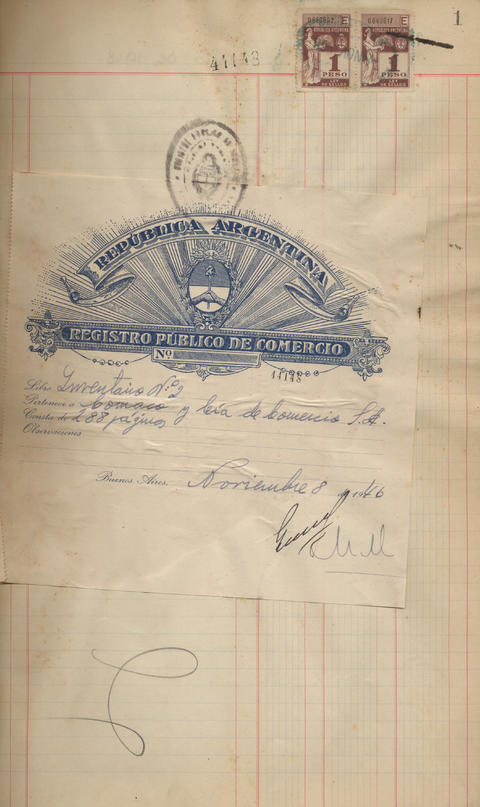 1
41148
0640617 E
REPUBLICA ARGENTINA
1
PESO
LEY
DE SELLOS
0640617 E
REPUBLICA ARGENTINA
1
PESO
LEY
DE SELLOS
REPÚBLICA ARGENTINA
REGISTRO PÚBLICO DE COMERCIO
Nº
41148
Libro Inventario Nº 2
Pertenece a Comaco y Cía de Comercio S.A.
Consta de 288 páginas
Observaciones
Buenos Aires, Noviembre 8 de 1946